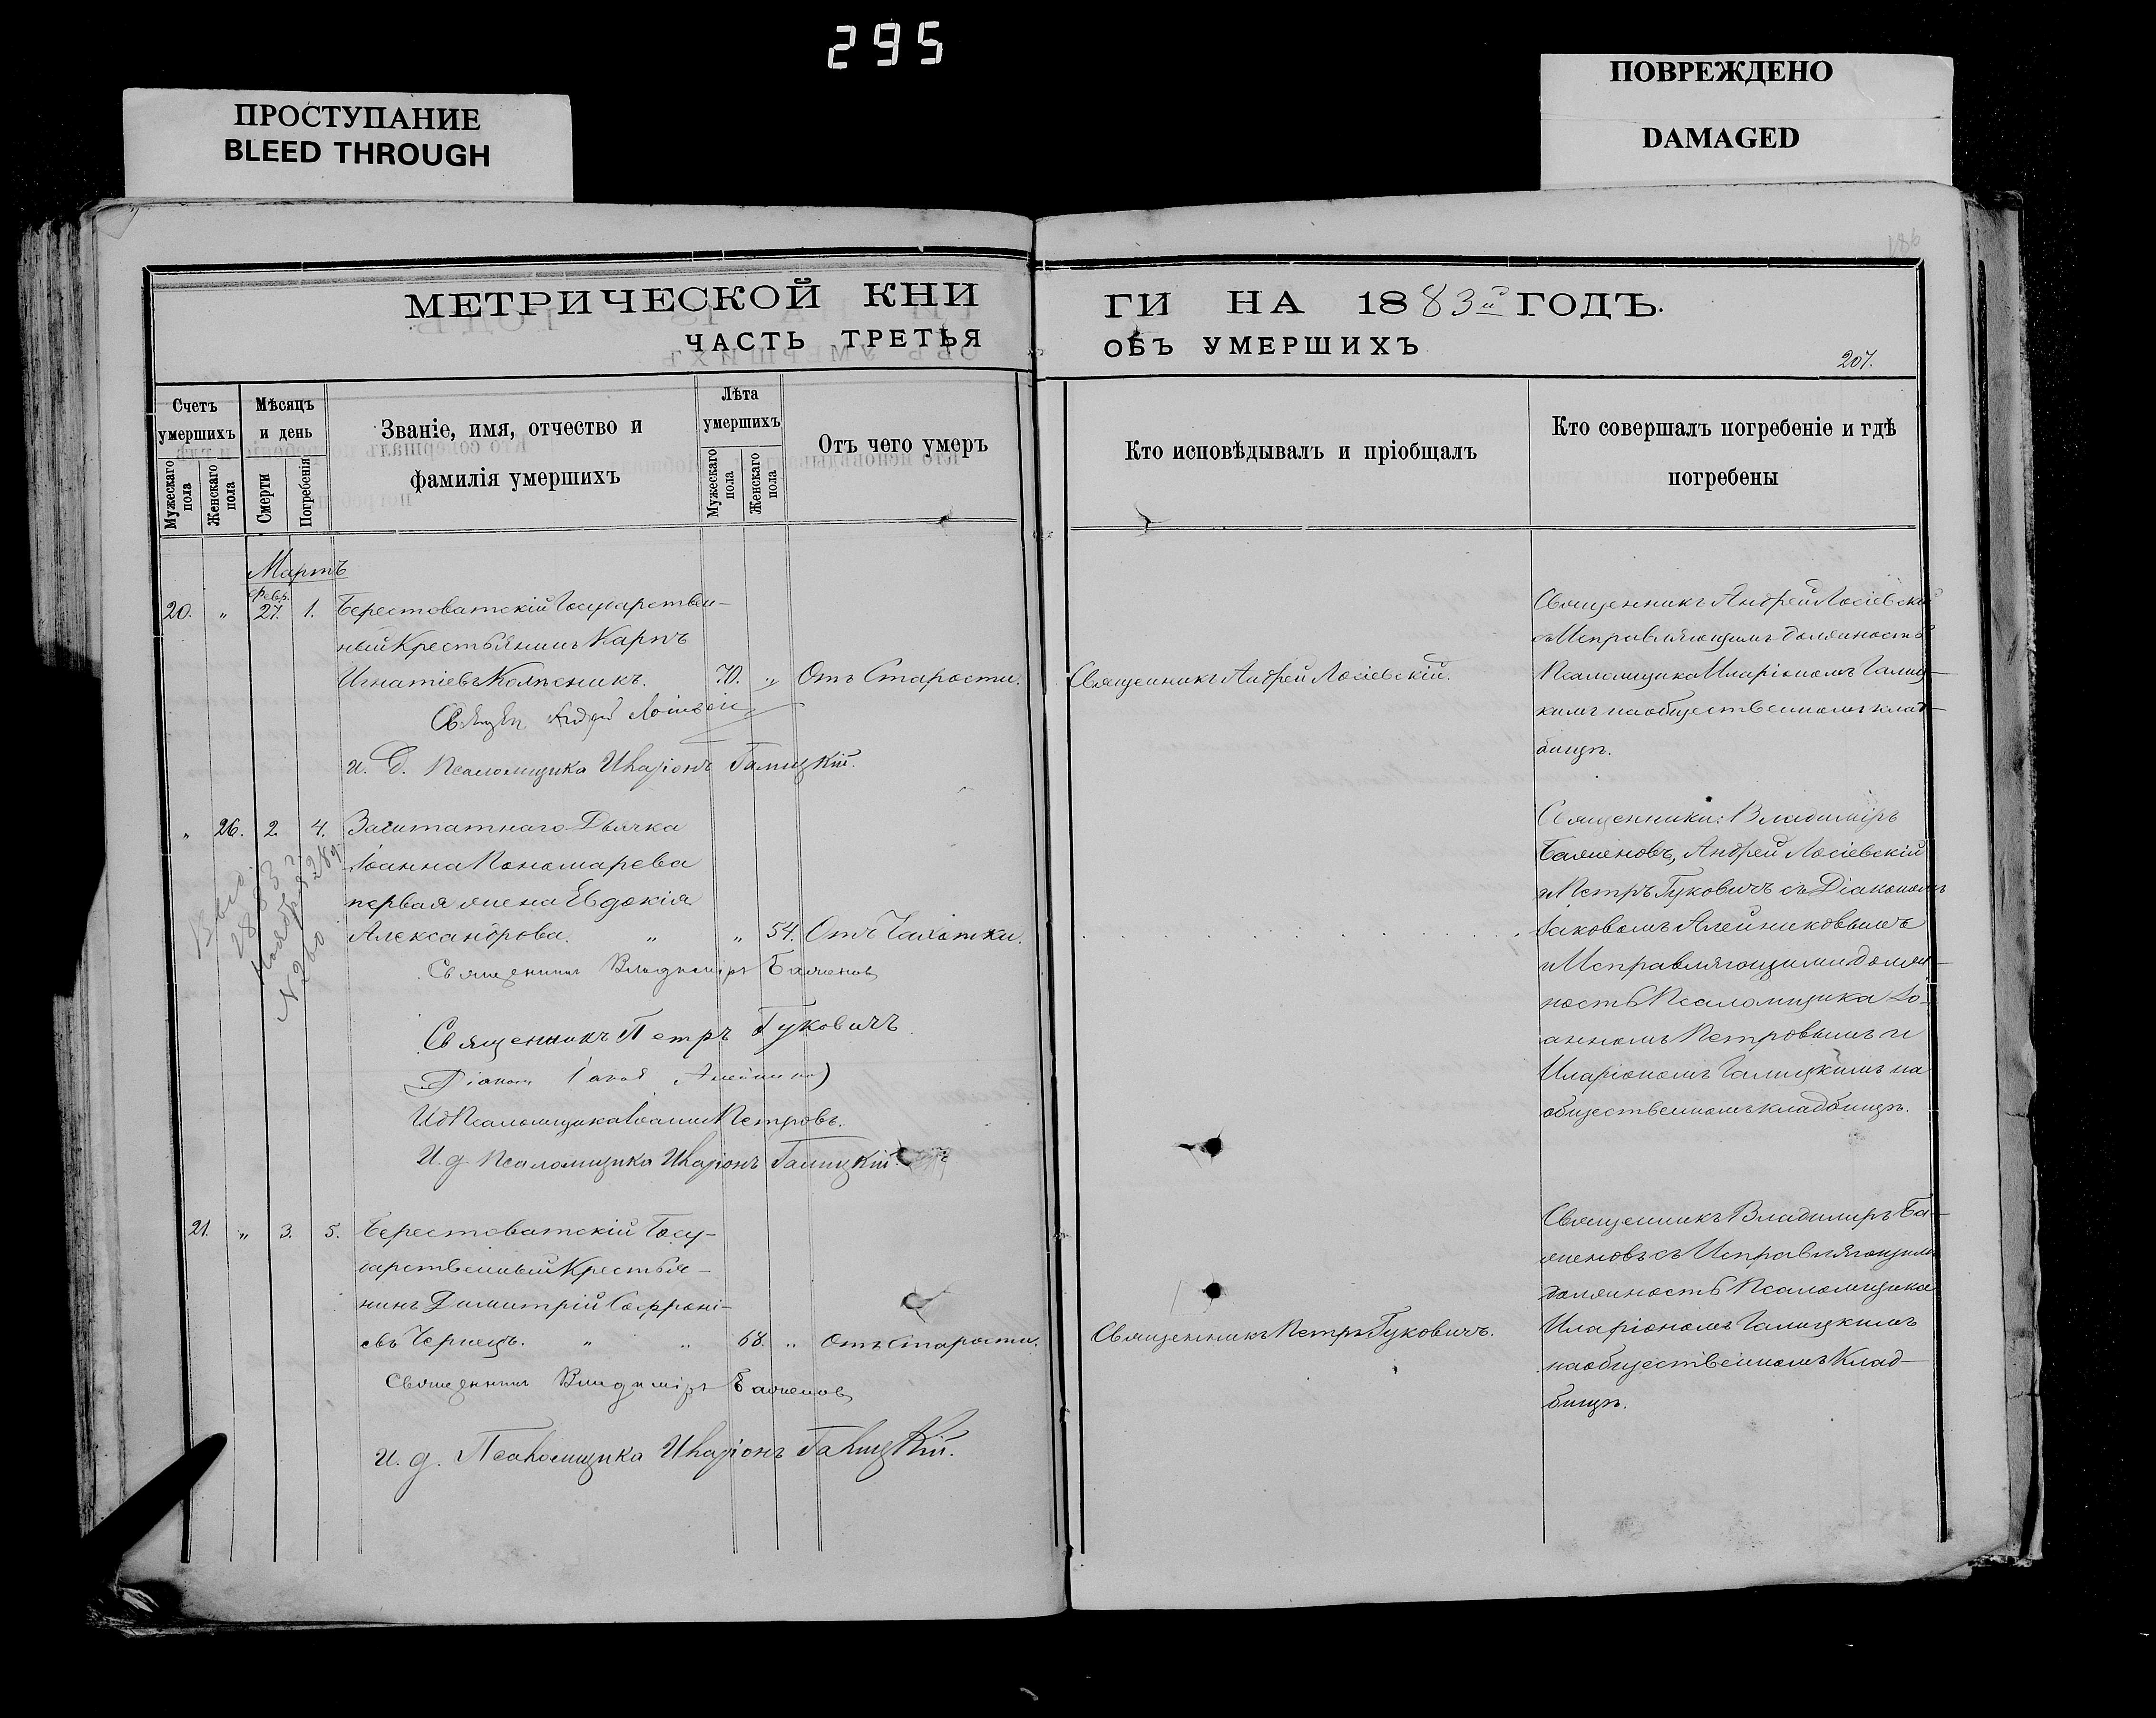 295
ПРОСТУПАНИЕ
BLEED THROUGH
ПОВРЕЖДЕНО
DAMAGED
186
МЕТРИЧЕСКОЙ КНИ
ЧАСТЬ ТРЕТЬЯ
Счетъ умершихъ
Мужескаго пола
Женскаго пола
Мѣсяцъ и день
Смерти
Погребенія
Званіе, имя, отчество и
фамилія умершихъ
Лѣта умершихъ
Мужескаго пола
Женскаго пола
Отъ чего умеръ
ГИ НА 1883й ГОДЪ.
ОБЪ УМЕРШИХЪ
207.
Кто исповѣдывалъ и пріобщалъ
Кто совершалъ погребеніе и гдѣ
погребены
Мартъ
Февр.
20. „ 27. 1. Берестоватскій Государствен-
ный Крестьянинъ Карпъ
Игнатіевъ Колѣсникъ. 70. „ Отъ Старости.
Андрей
и. д. Псаломщика Иларіонъ Галицкій.
Священникъ Андрей Лосіевскій.
Священникъ Андрей Лосіевскій
съ Исправляющимъ должность
Псаломщика Иларіономъ Галиц-
кимъ на общественномъ клад-
бищѣ.
„ 26. 2. 4. Заштатнаго Дьячка
Іоанна Пономарева
первая жена Евдокія
Александрова. „ „ 54. Отъ Чахотки.
Священникъ Владиміръ Баженов
Священникъ Петръ Гуковичъ
Діаконъ
ИдПсаломщика Іоаннъ Петровъ.
И. д. Псаломщика Иларіонъ Галицкій.
1883
Ноября 28 д.
N 260
Священники: Владиміръ
Баженовъ, Андрей Лосіевскій
и Петръ Гуковичъ съ Діакономъ
Іаковомъ Алейниковымъ
и Исправляющими долж-
ность Псаломщика Іо-
анномъ Петровымъ и
Иларіономъ Галицкимъ на
общественномъ кладбищѣ.
21. „ 3. 5. Берестоватскій Госу-
дарственный Крестья-
нинъ Димитрій Софроні-
евъ Чернецъ. „ „ 68. „ Отъ Старости.
Священникъ Владиміръ Баженов
и. д. Псаломщика Иларіонъ Галицкій.
Священникъ Петръ Гуковичъ.
Священникъ Владимиръ Ба-
женовъ съ Исправляющимъ
должность Псаломщика
Иларіономъ Галицкимъ
на общественномъ Клад-
бищѣ.